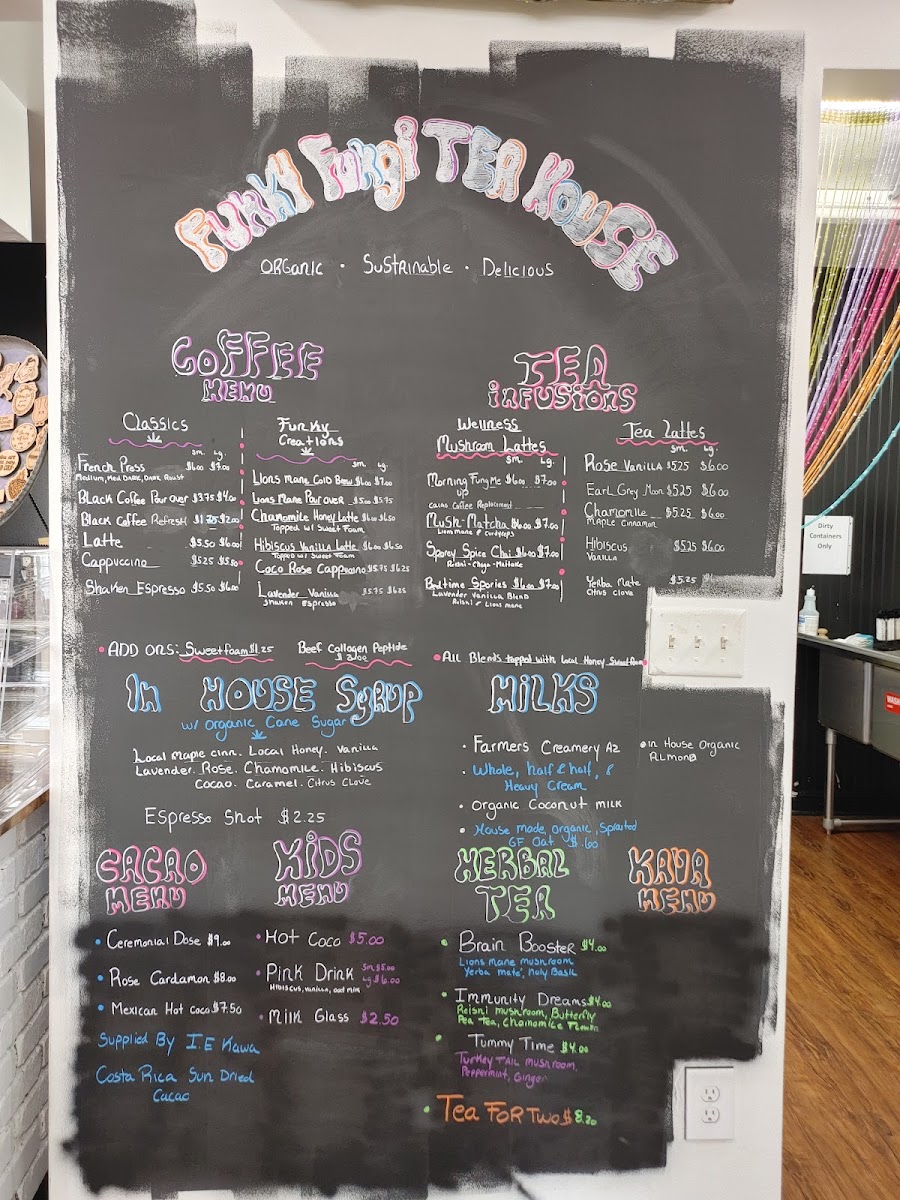 FUNKY FUNGI TEA HOUSE
ORGANIC · SUSTAINABLE · DELICIOUS
COFFEE
MENU
Classics
sm. Lg.
French Press $6.00 $7.00
Medium, Med Dark, Dark Roast
Black Coffee Pour over $3.75 $4.00
Black Coffee Refresh $1.75 $2.00
Latte $5.50 $6.00
Cappuccino $5.25 $5.50
Shaken Espresso $5.50 $6.00
Funky
Creations
sm. Lg.
Lions Mane Cold Brew $6.00 $7.00
Lions Mane Pour over $5.00 $5.75
Chamomile Honey Latte $6.00 $6.50
Topped w/ Sweet Foam
Hibiscus Vanilla Latte $6.00 $6.50
Topped w/ Sweet Foam
Coco Rose Cappucino $5.75 $6.25
Lavender Vanilla $5.75 $6.25
Shaken Espresso
• ADD ONS: Sweetfoam $1.25
Beef Collagen Peptide
$2.00
TEA
INFUSIONS
Wellness
Mushroom Lattes
sm. Lg.
Morning Fung Me $6.00 $7.00
up
Cacao Coffee Replacement
Mush Matcha $6.00 $7.00
Lions Mane & Cordyceps
Sporey Spice Chai $6.00 $7.00
Reishi - Chaga - Maitake
Bedtime Spories $6.00 $7.00
Lavender Vanilla Blend
Reishi & Lions mane
Tea Lattes
sm. Lg.
Rose Vanilla $5.25 $6.00
Earl Grey Moon $5.25 $6.00
Chamomile $5.25 $6.00
Maple Cinnamon
Hibiscus $5.25 $6.00
Vanilla
Yerba Mate $5.25
Citrus Clove
• All Blends topped with Local Honey Sweet Foam
IN HOUSE SYRUP
w/ Organic Cane Sugar
Local Maple Cinn. Local Honey. Vanilla
Lavender. Rose. Chamomile. Hibiscus
Cocao. Caramel. Citrus Clove
Espresso Shot $2.25
MILKS
• Farmers Creamery A2
• Whole, half & half, &
Heavy Cream
• Organic Coconut milk
• House made, organic, Sprouted
GF Oat $.60
• in House Organic
Almond
CACAO
MENU
• Ceremonial Dose $9.00
• Rose Cardamon $8.00
• Mexican Hot Coco $7.50
Supplied By I.E Kawa
Costa Rica Sun Dried
Cacao
KIDS
MENU
• Hot Coco $5.00
• Pink Drink Sm $5.00
Lg $6.00
Hibiscus, vanilla, oat milk
• Milk Glass $2.50
HERBAL
TEA
• Brain Booster $4.00
Lions mane mushroom
Yerba mate', Holy Basil
• Immunity Dreams $4.00
Reishi mushroom, Butterfly
Pea Tea, Chamomile Flower
• Tummy Time $4.00
Turkey Tail mushroom,
Peppermint, Ginger
• Tea FOR TWO $8.20
KAVA
MENU
Dirty
Containers
Only